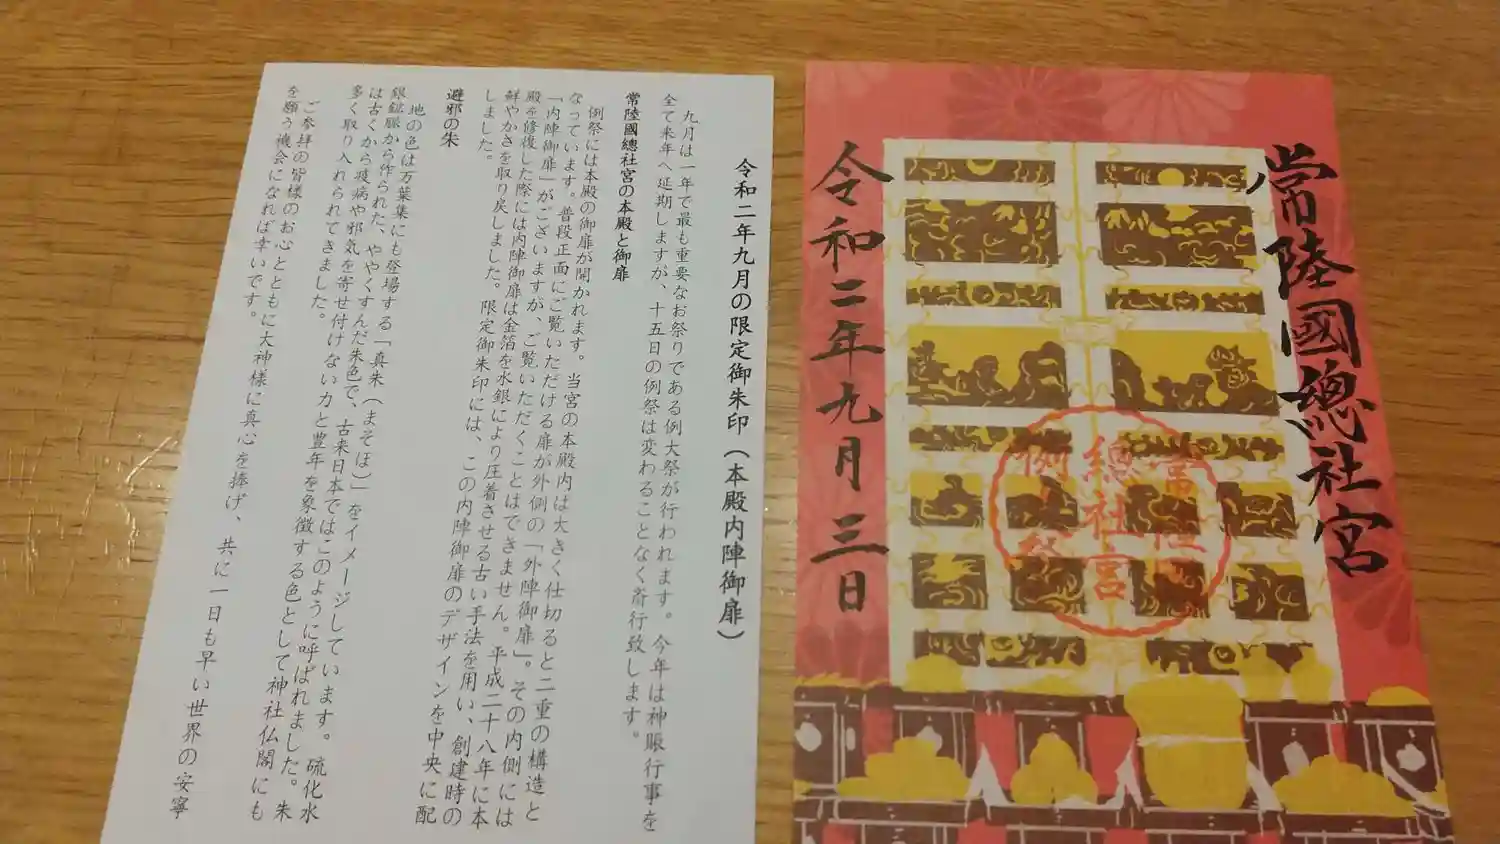 令和二年九月の限定御朱印（本殿内陣御扉）
九月は一年で最も重要なお祭りである例大祭が行われます。今年は神賑行事を
全て来年へ延期しますが、十五日の例祭は変わることなく斎行致します。
常陸國總社宮の本殿と御扉
例祭には本殿の御扉が開かれます。当宮の本殿内は大きく仕切ると二重の構造と
なっています。普段正面にご覧いただける扉が外側の「外陣御扉」。その内側には
「内陣御扉」がございますが、ご覧いただくことはできません。平成二十八年に本
殿を修復した際には内陣御扉は金箔を水銀により圧着させる古い手法を用い、創建時の
鮮やかさを取り戻しました。限定御朱印には、この内陣御扉のデザインを中央に配
しました。
避邪の朱
地の色は万葉集にも登場する「真朱（まそほ）」をイメージしています。硫化水
銀鉱脈から作られた、ややくすんだ朱色で、古来日本ではこのように呼ばれました。朱
は古くから疫病や邪気を寄せ付けない力と豊年を象徴する色として神社仏閣にも
多く取り入れられてきました。
ご参拝の皆様のお心とともに大神様に真心を捧げ、共に一日も早い世界の安寧
を願う機会になれば幸いです。
常陸國總社宮
常陸
總社宮
例祭
令和二年九月三日